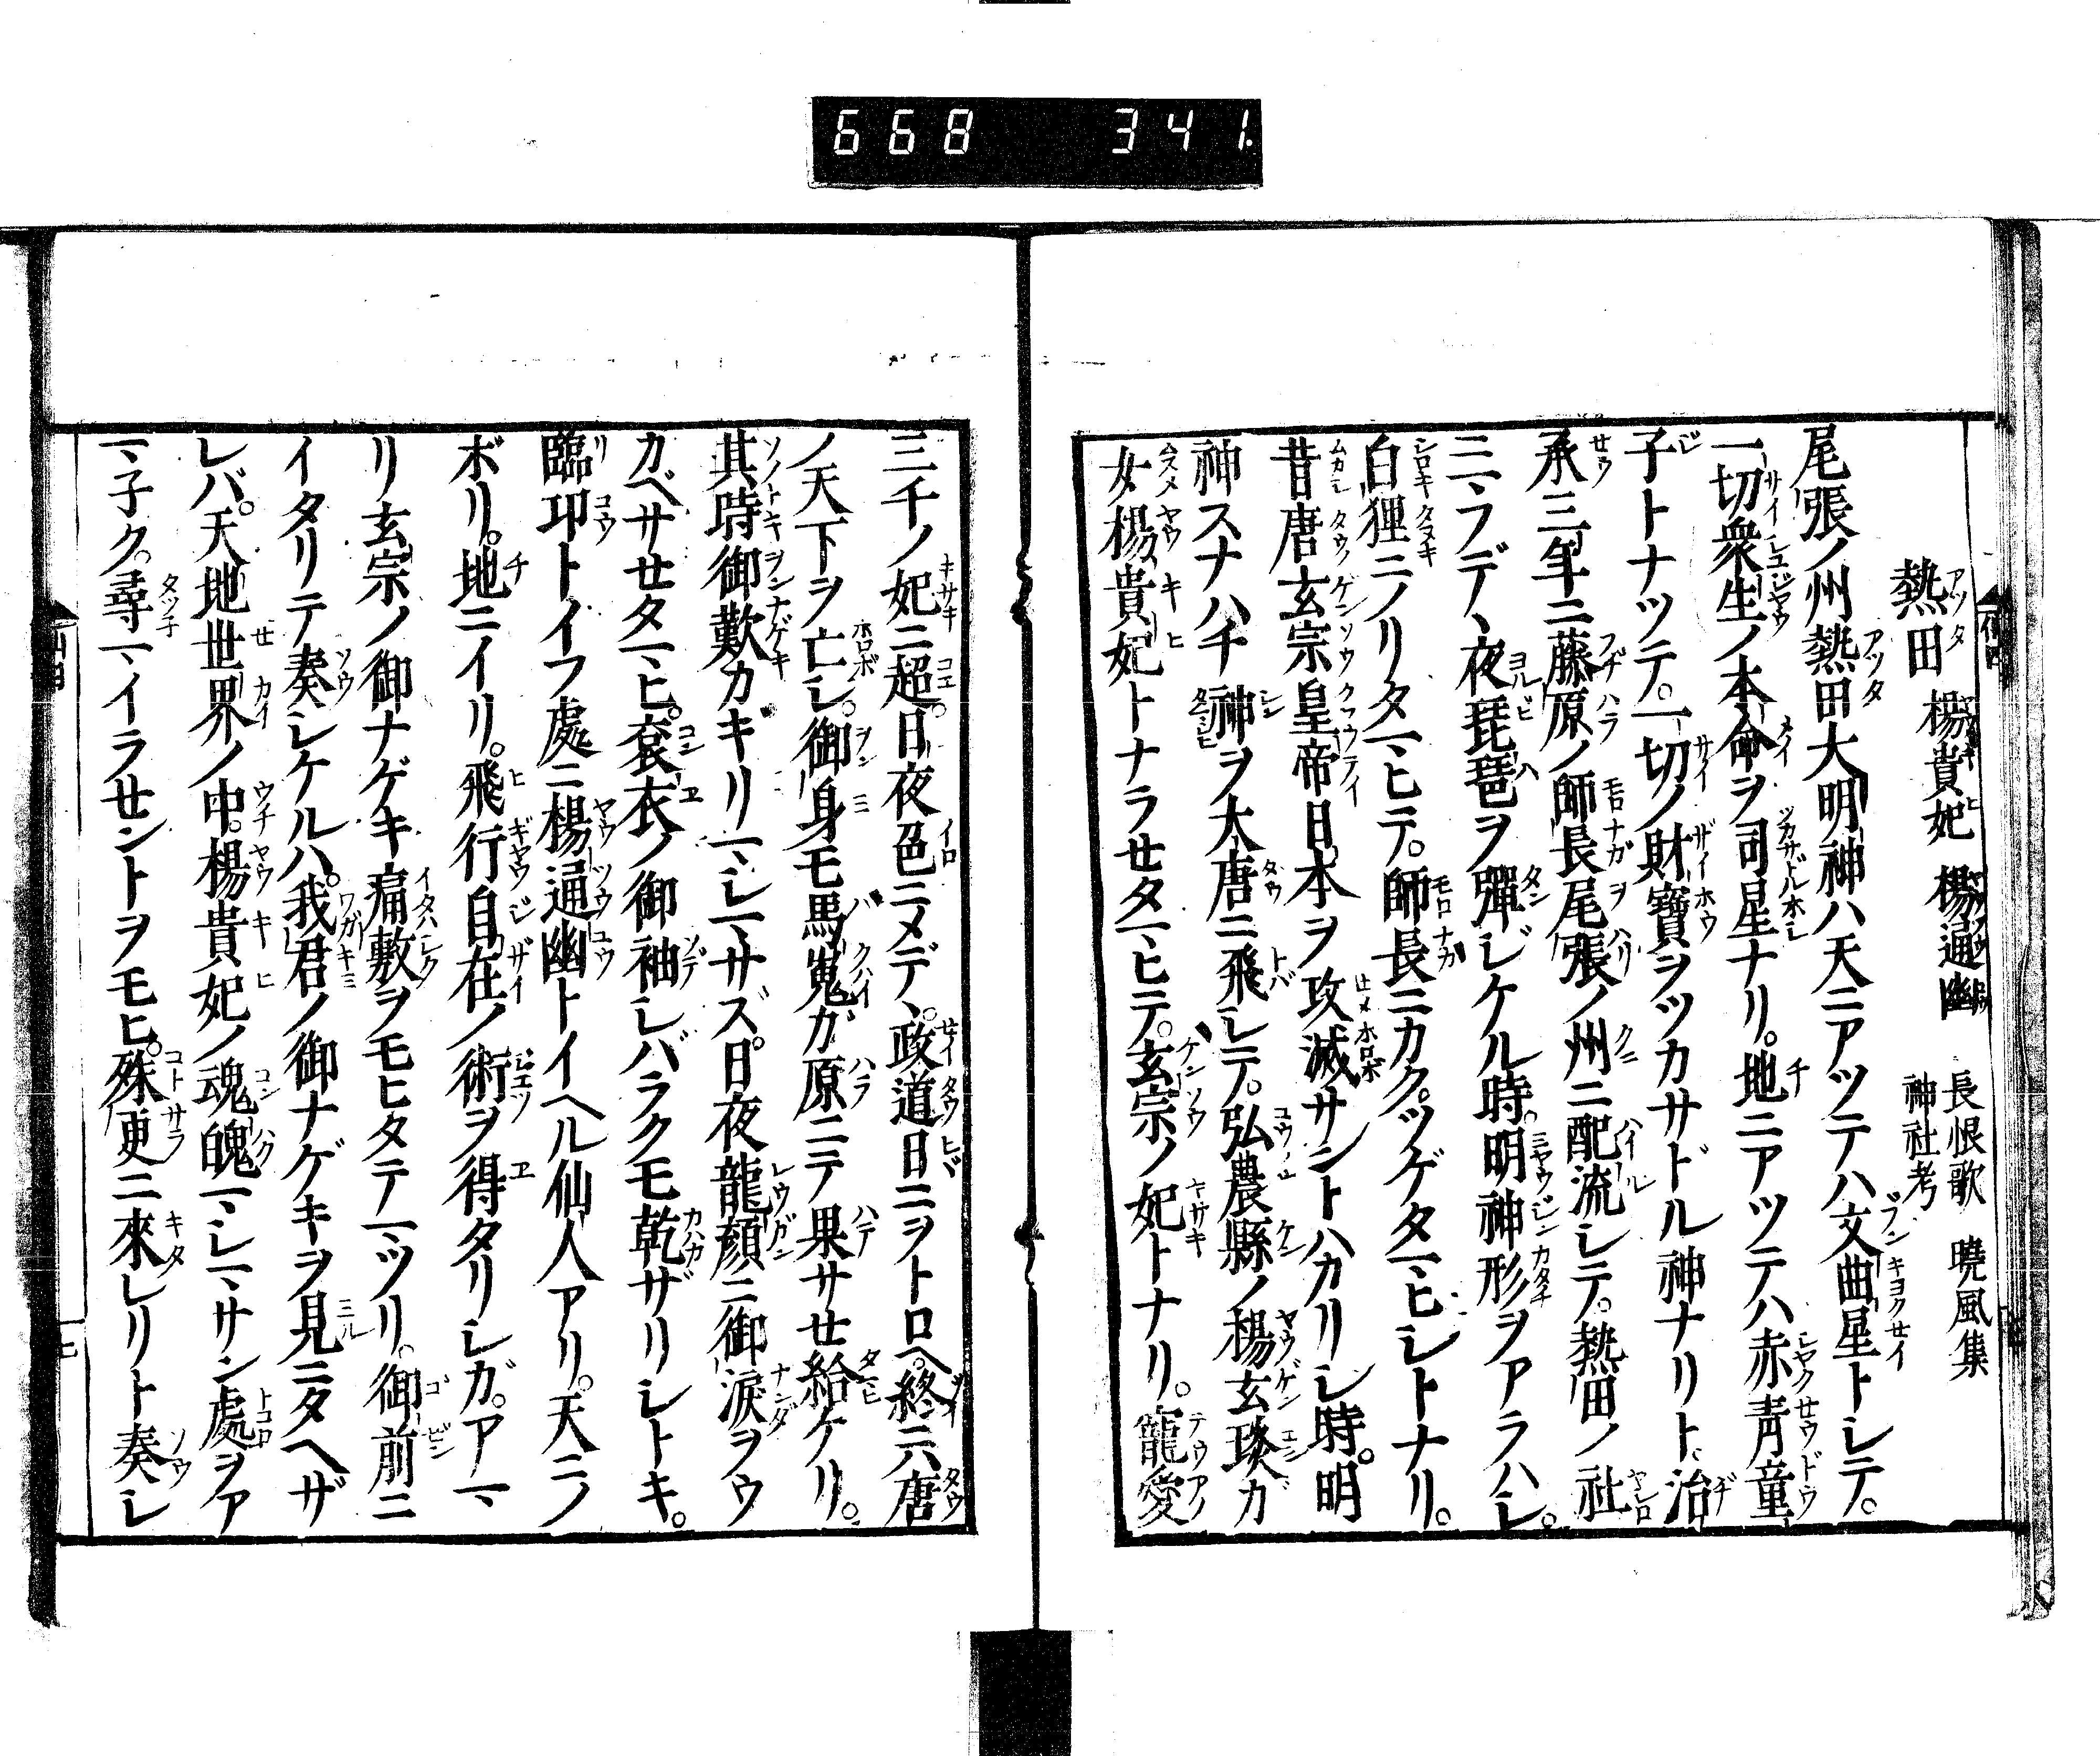 668 341.
熱田 楊貴妃 楊通幽 長恨歌 曉風集
神社考
尾張ノ州熱田大明神ハ天ニアツテハ文曲星トシテ。
一切衆生ノ本命ヲ司星ナリ。地ニアツテハ赤青童
子トナツテ。一切ノ財寶ヲツカサドル神ナリト、治
承三年ニ藤原ノ師長尾張ノ州ニ配流シテ。熱田ノ社
ニマフデヽ夜琵琶ヲ彈ジケル時。明神形ヲアラハシ。
白狸ニノリタマヒテ。師長ニカク。ツゲタマヒシトナリ。
昔唐玄宗皇帝日本ヲ攻滅サントハカリシ時。明
神スナハチ神ヲ大唐ニ飛シテ。弘農縣ノ楊玄琰カ
女楊貴妃トナラセタマヒテ。玄宗ノ妃トナリ。寵愛
三千ノ妃ニ超。日夜色ニメデヽ。政道日ニヲトロヘ。終ニ唐
ノ天下ヲ亡シ。御身モ馬嵬カ原ニテ果サセ給ケリ。
其時御歎カギリマシマサズ。日夜龍顔ニ御涙ヲウ
カベサセタマヒ。袞衣ノ御袖シバラクモ乾ザリシトキ。
臨邛トイフ處ニ楊通幽トイヘル仙人アリ。天ニノ
ボリ。地ニイリ。飛行自在ノ術ヲ得タリシガ。アマ
リ玄宗ノ御ナゲキ痛敷ヲモヒタテマツリ。御前ニ
イタリテ奏シケルハ。我君ノ御ナゲキヲ見ニタヘザ
レバ。天地世界ノ中。楊貴妃ノ魂魄マシマサン處ヲア
マ子ク。尋マイラセントヲモヒ。殊更ニ來レリト奏シ